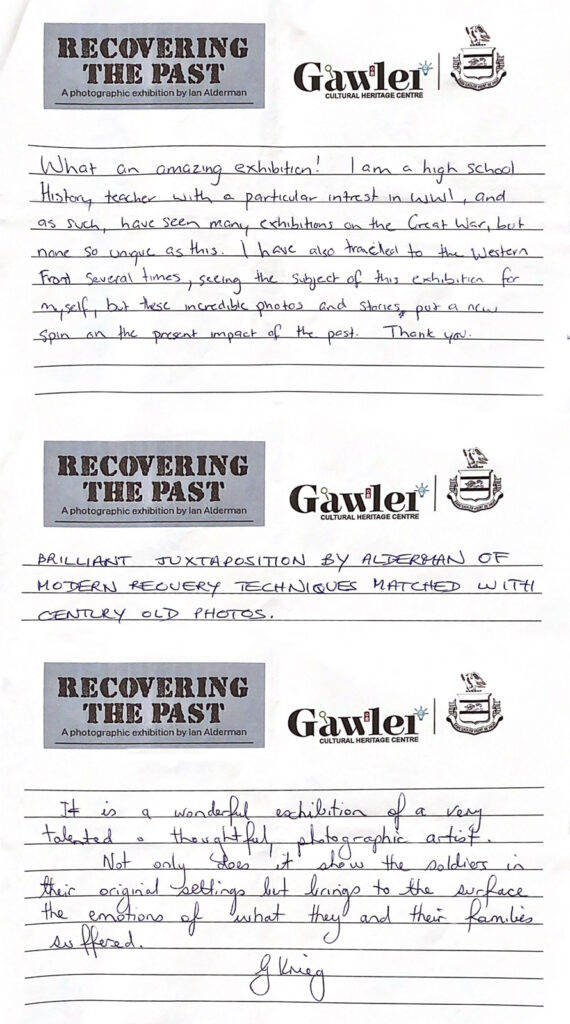 RECOVERING
THE PAST
A photographic exhibition by Ian Alderman
Gawler
CULTURAL HERITAGE CENTRE
What an amazing exhibition! I am a high school
History teacher with a particular intrest in WWI, and
as such, have seen many exhibitions on the Great War, but
none so unique as this. I have also travelled to the Western
Front several times, seeing the subject of this exhibition for
myself, but these incredible photos and stories, put a new
spin on the present impact of the past. Thank you.
RECOVERING
THE PAST
A photographic exhibition by Ian Alderman
Gawler
CULTURAL HERITAGE CENTRE
BRILLIANT JUXTAPOSITION BY ALDERMAN OF
MODERN RECOVERY TECHNIQUES MATCHED WITH
CENTURY OLD PHOTOS.
RECOVERING
THE PAST
A photographic exhibition by Ian Alderman
Gawler
CULTURAL HERITAGE CENTRE
It is a wonderful exhibition of a very
talented & thoughtful, photographic artist.
Not only does it show the soldiers in
their original settings but brings to the surface
the emotions of what they and their families
suffered.
G Krieg